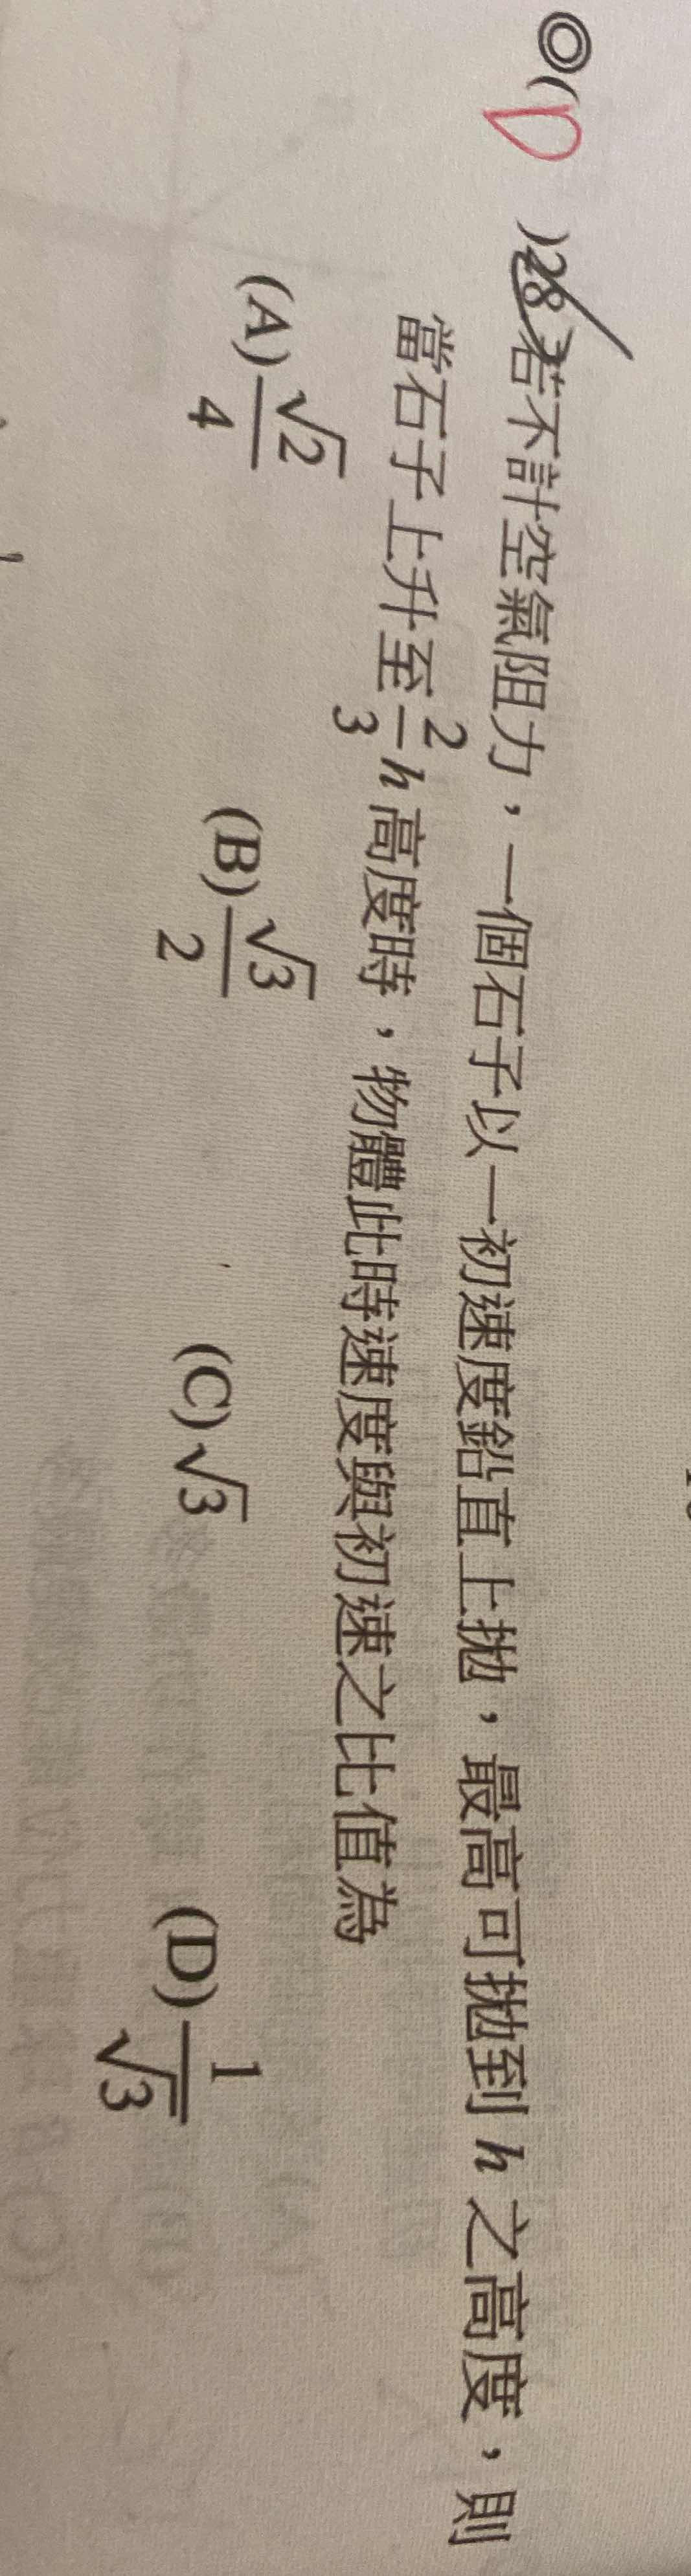 ◎( D )28. 若不計空氣阻力，一個石子以一初速度鉛直上拋，最高可拋到 h 之高度，則
當石子上升至 2/3 h 高度時，物體此時速度與初速之比值為
(A) √2/4 (B) √3/2 (C) √3 (D) 1/√3